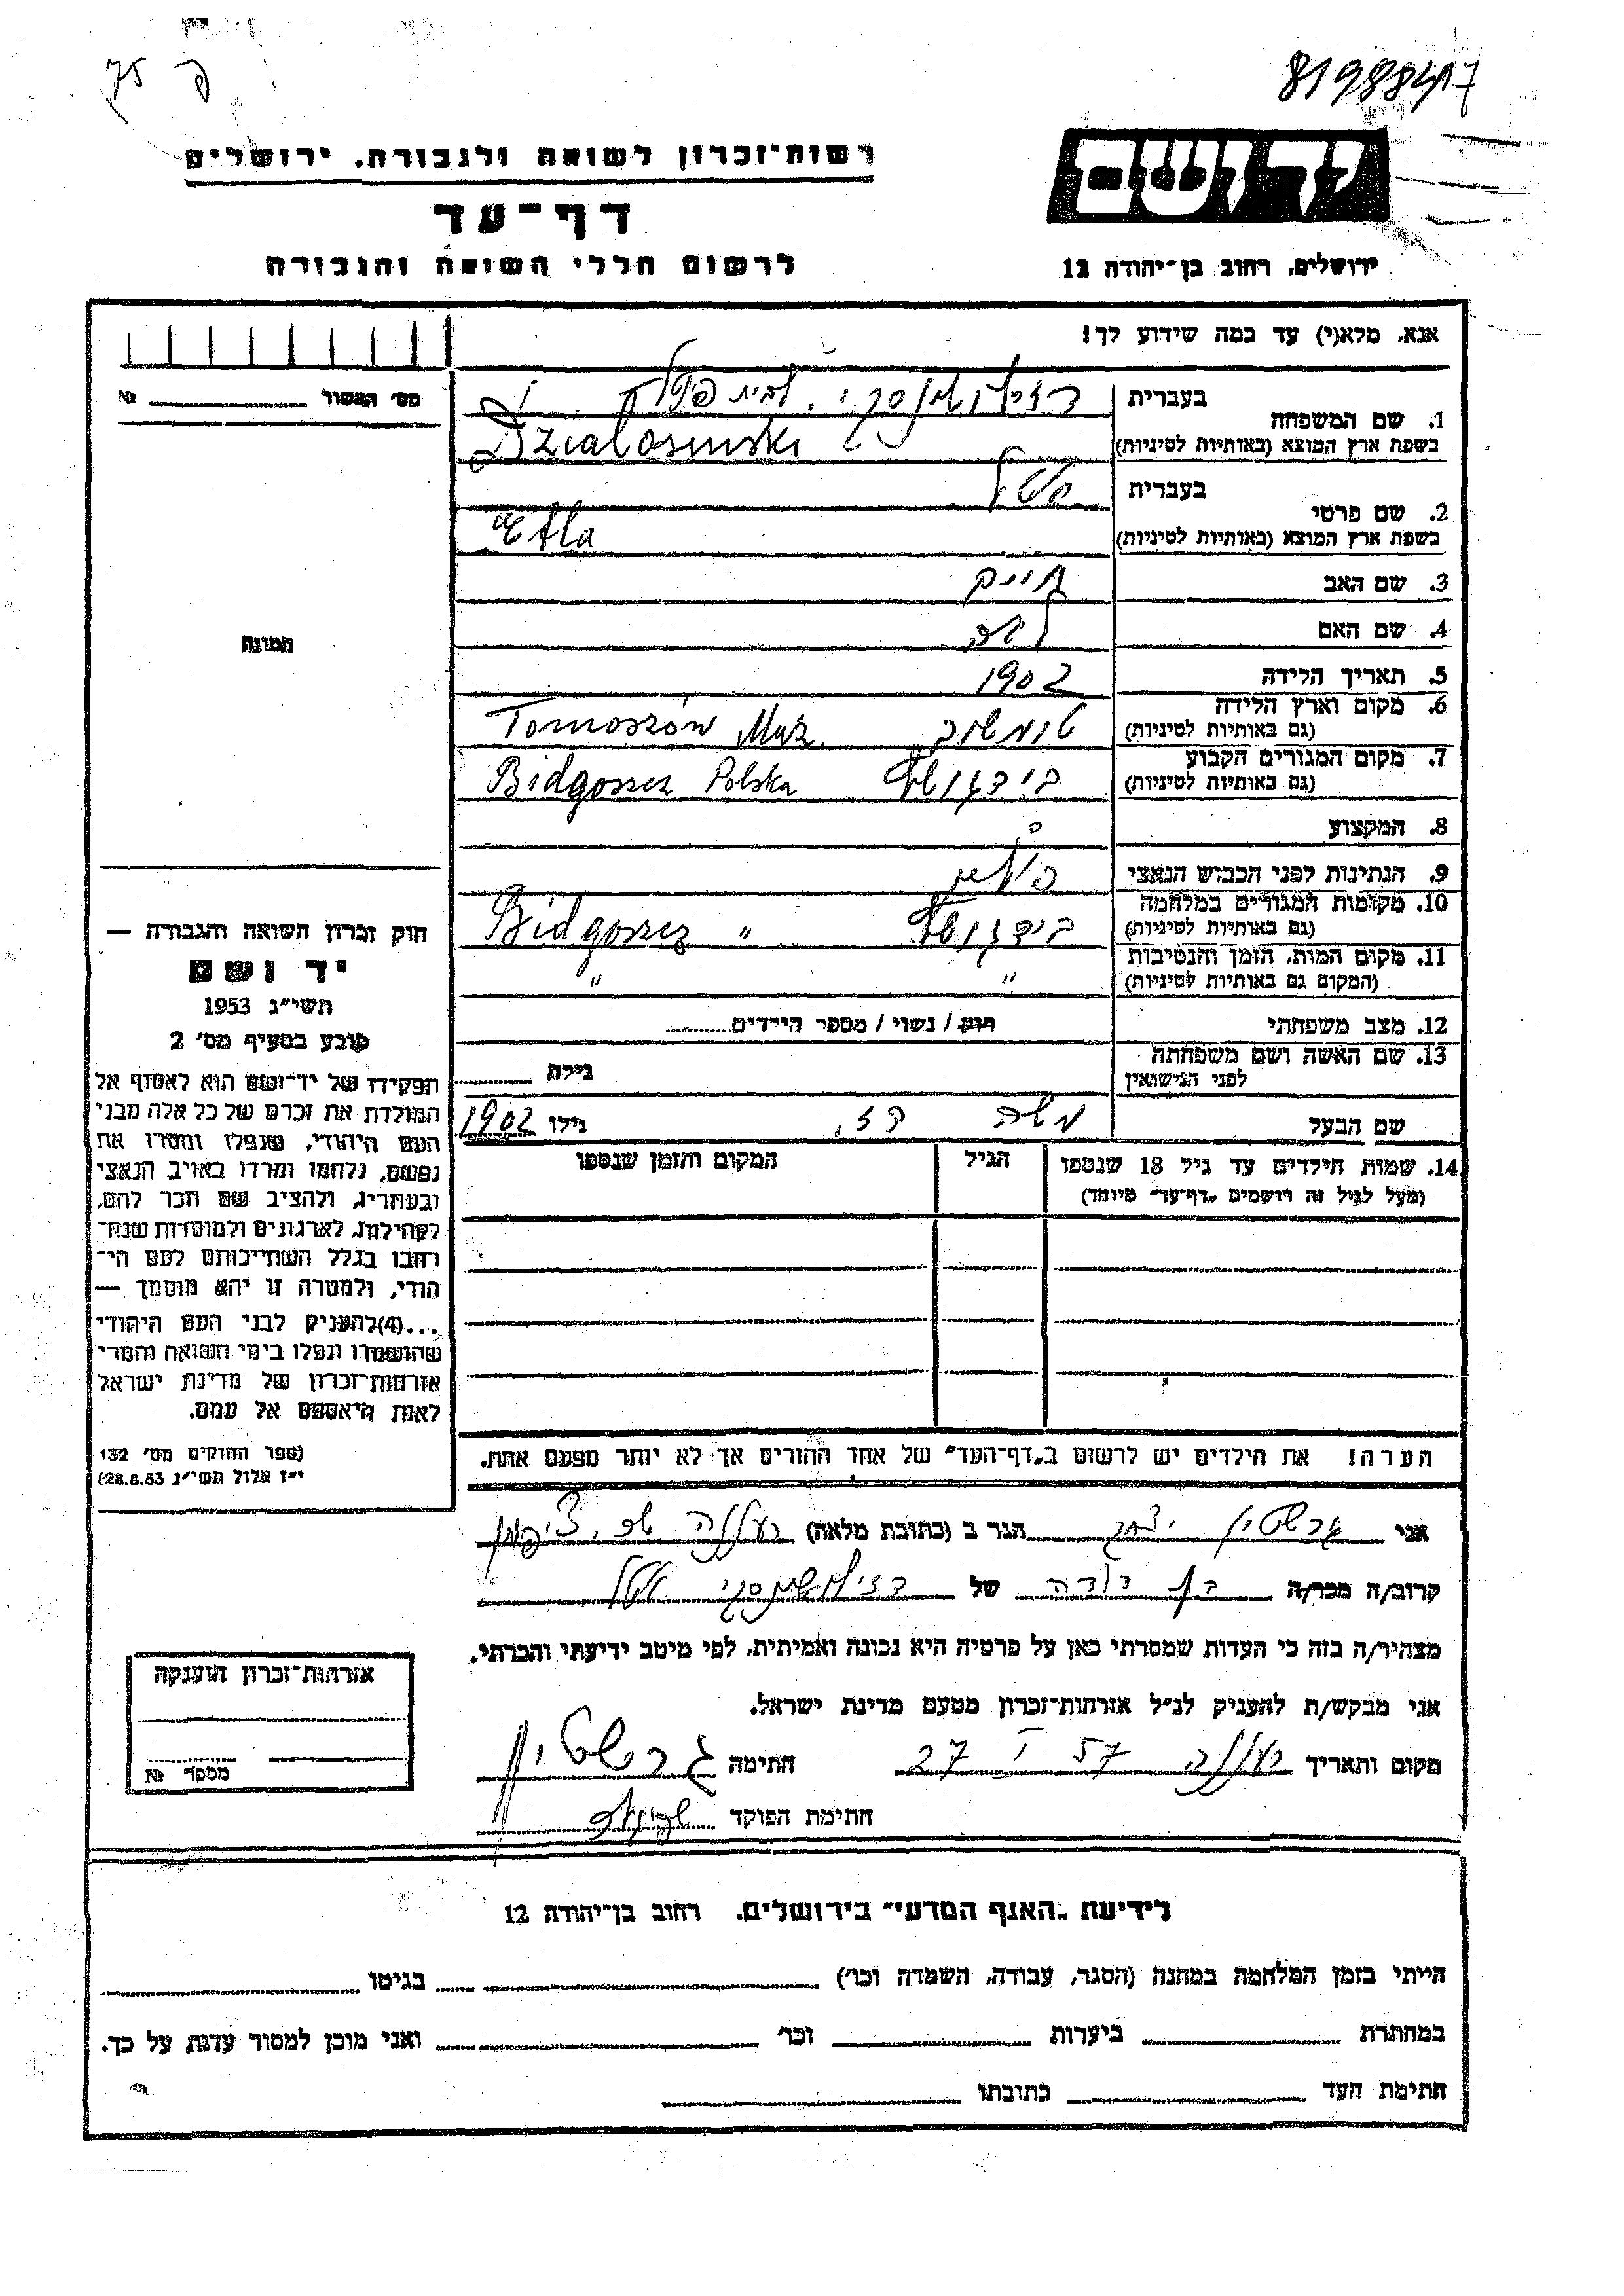 8198847
75 פ
יד ושם
רשות־זכרון לשואה ולגבורה, ירושלים
דף־עד
לרשום חללי השואה והגבורה
ירושלים, רחוב בן־יהודה 12
אנא, מלא(י) עד כמה שידוע לך!
מס׳ האשור №
1. שם המשפחה
בעברית לבית
בשפת ארץ המוצא (באותיות לטיניות) Dzialosinski
2. שם פרטי
בעברית
בשפת ארץ המוצא (באותיות לטיניות) Etla
3. שם האב חיים
4. שם האם
5. תאריך הלידה 1902
6. מקום וארץ הלידה
(גם באותיות לטיניות) טומשוב Tomoszów Maz.
7. מקום המגורים הקבוע
(גם באותיות לטיניות) Bidgoszcz Polska
8. המקצוע
9. הנתינות לפני הכבוש הנאצי
10. מקומות המגורים במלחמה
(גם באותיות לטיניות) Bidgoszcz "
11. מקום המות, הזמן והנסיבות
(המקום גם באותיות לטיניות) " "
12. מצב משפחתי רוק / נשוי / מספר הילדים
13. שם האשה ושם משפחתה
לפני הנישואין גילה
שם הבעל משה דז. גילו 1902
14. שמות הילדים עד גיל 18 שנספו
(מעל לגיל זה רושמים „דף־עד״ מיוחד)
הגיל
המקום והזמן שנספו
הערה! את הילדים יש לרשום ב„דף־העד״ של אחד ההורים אך לא יותר מפעם אחת.
תמונה
חוק זכרון השואה והגבורה —
יד ושם
תשי״ג 1953
קובע בסעיף מס׳ 2
תפקידו של יד־ושם הוא לאסוף אל
המולדת את זכרם של כל אלה מבני
העם היהודי, שנפלו ומסרו את
נפשם, נלחמו ומרדו באויב הנאצי
ובעוזריו, ולהציב שם וזכר להם,
לקהילות, לארגונים ולמוסדות שנח־
רבו בגלל השתייכותם לעם הי־
הודי, ולמטרה זו יהא מוסמך —
...(4)להעניק לבני העם היהודי
שהושמדו ונפלו בימי השואה והמרי
אזרחות־זכרון של מדינת ישראל
לאות היאספם אל עמם.
(ספר החוקים מס׳ 132
י״ז אלול תשי״ג 28.8.53)
אני גרשטיין יצחק הגר ב (כתובת מלאה) רעננה
קרוב/ה מכר/ה בן דודה של
מצהיר/ה בזה כי העדות שמסרתי כאן על פרטיה היא נכונה ואמיתית, לפי מיטב ידיעתי והכרתי.
אני מבקש/ת להעניק לנ״ל אזרחות־זכרון מטעם מדינת ישראל.
מקום ותאריך רעננה 27 I 57 חתימה גרשטיין
חתימת הפוקד
אזרחות־זכרון הוענקה
מספר №
לידיעת „האגף המדעי״ בירושלים, רחוב בן־יהודה 12
הייתי בזמן המלחמה במחנה (הסגר, עבודה, השמדה וכו׳) בגיטו
במחתרת ביערות וכו׳ ואני מוכן למסור עדות על כך.
חתימת העד כתובתו